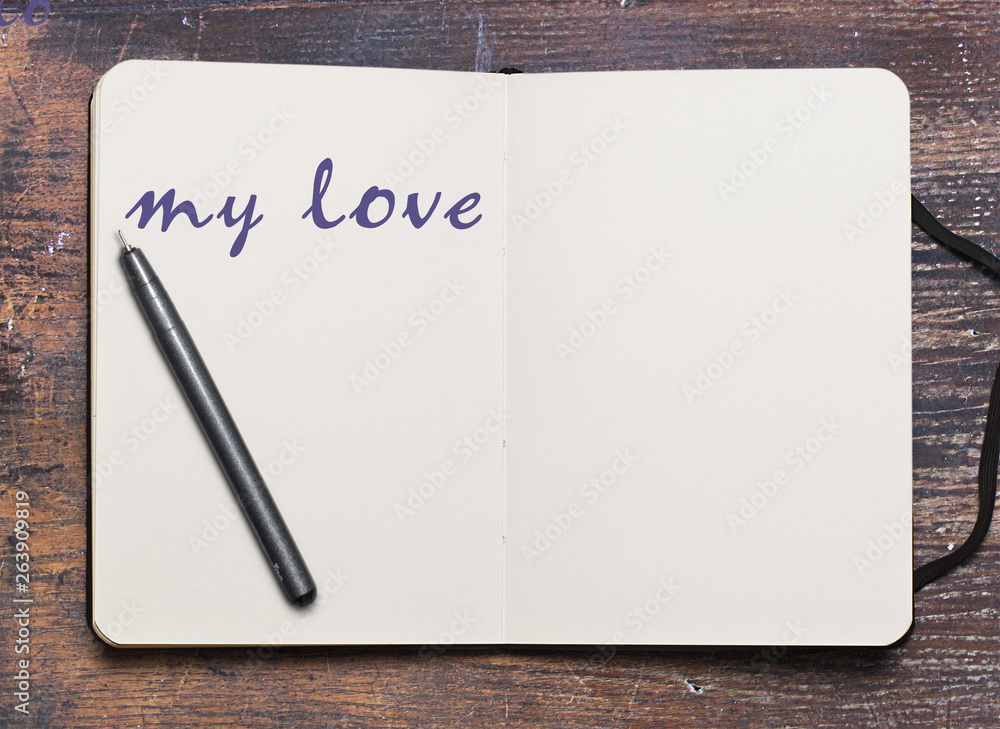 to
my love
Adobe Stock | #263909819